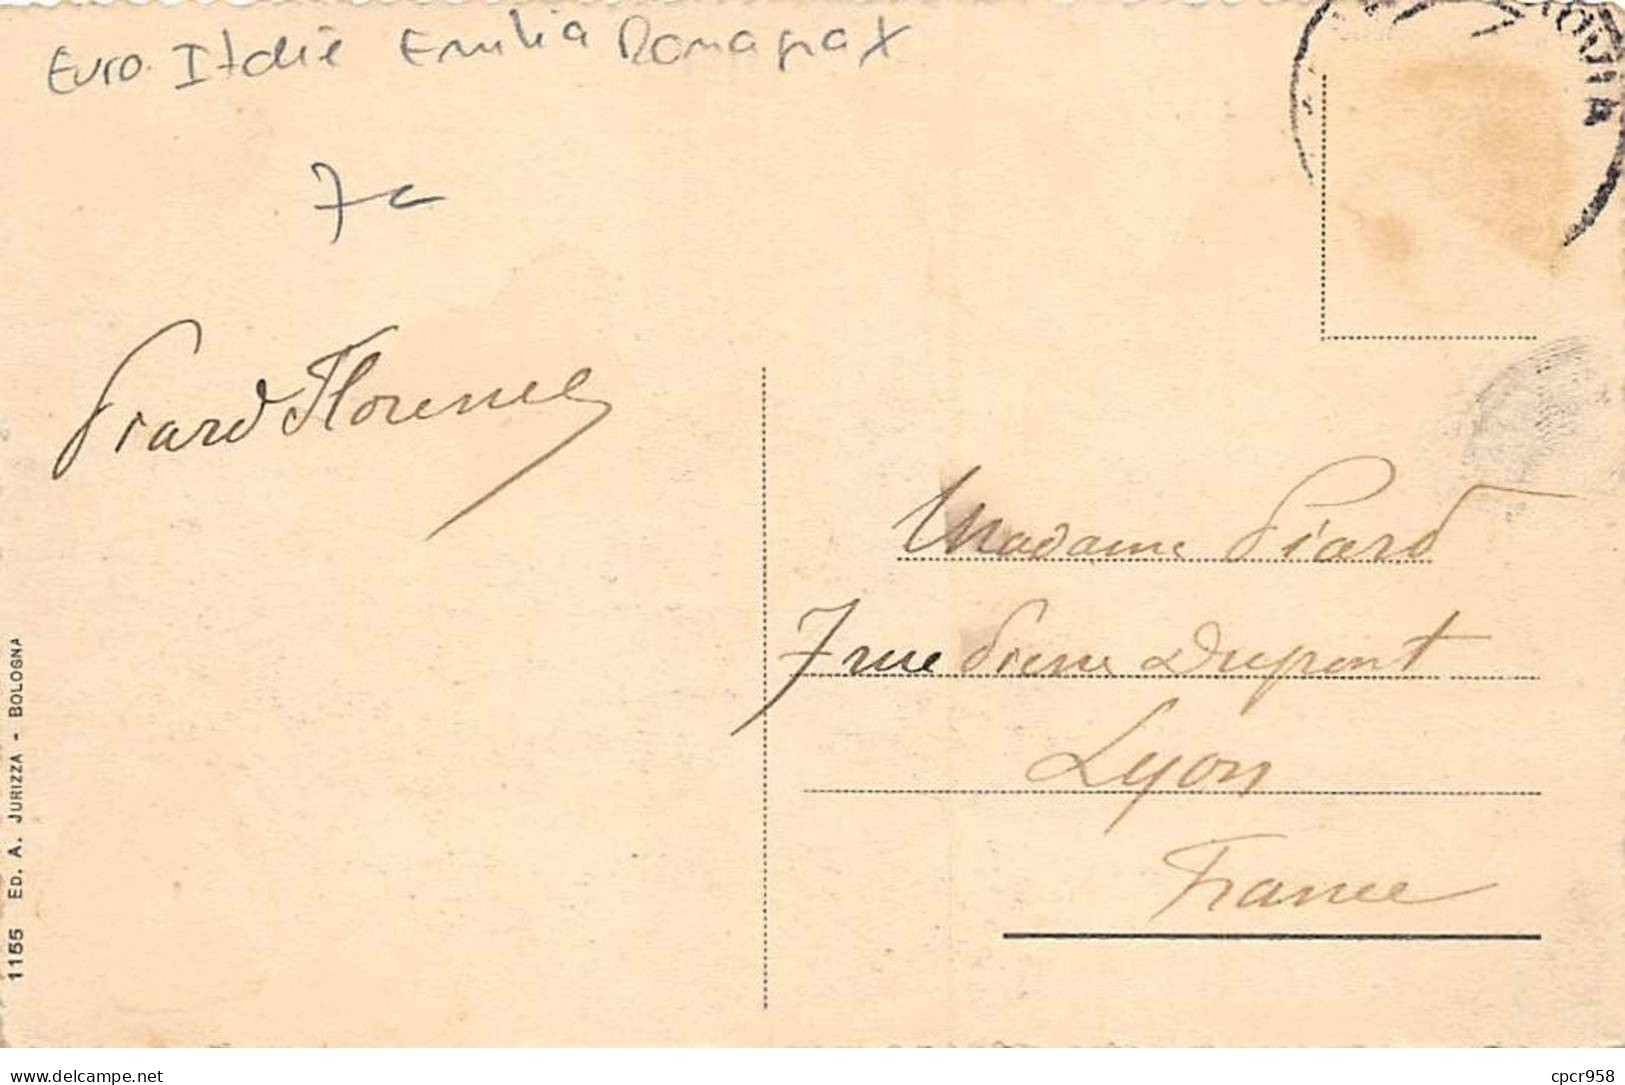 Euro Italie Emilia Romagna X
7c
Piard Florence
Madame Piard
7 rue Pierre Dupont
Lyon
France
1155 ED. A. JURIZZA - BOLOGNA
delcampe.net
cpcr958